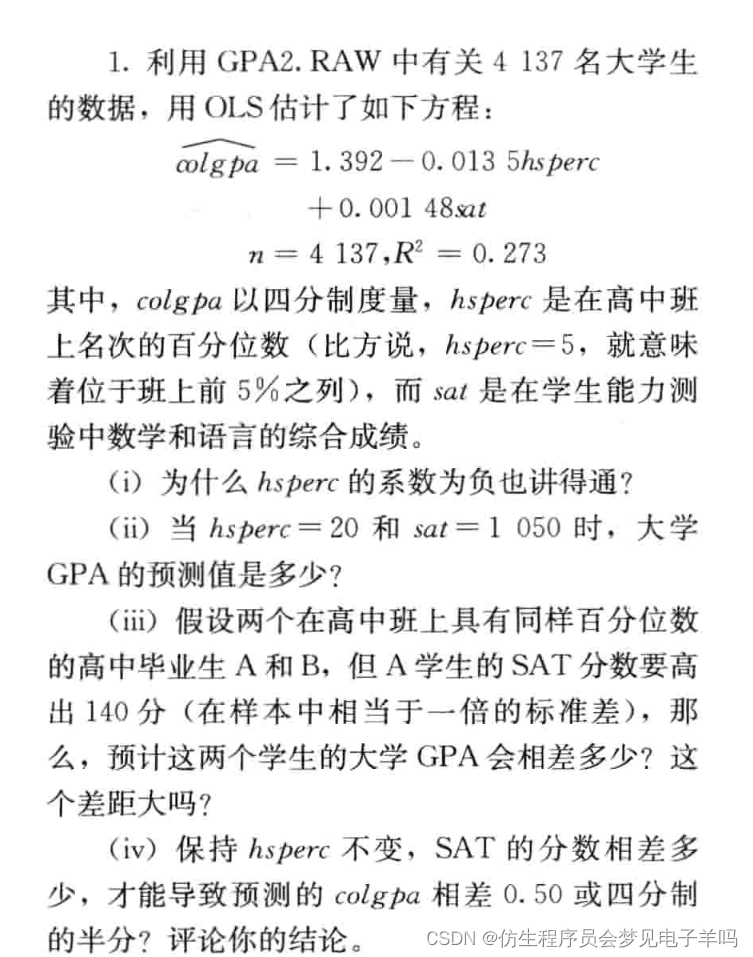 1. 利用 GPA2. RAW 中有关 4 137 名大学生
的数据，用 OLS 估计了如下方程：
colgpa = 1.392－0.013 5hsperc
＋0.001 48sat
n = 4 137,R² = 0.273
其中，colgpa 以四分制度量，hsperc 是在高中班
上名次的百分位数（比方说，hsperc＝5，就意味
着位于班上前 5%之列），而 sat 是在学生能力测
验中数学和语言的综合成绩。
（i）为什么 hsperc 的系数为负也讲得通？
（ii）当 hsperc＝20 和 sat＝1 050 时，大学
GPA 的预测值是多少？
（iii）假设两个在高中班上具有同样百分位数
的高中毕业生 A 和 B，但 A 学生的 SAT 分数要高
出 140 分（在样本中相当于一倍的标准差），那
么，预计这两个学生的大学 GPA 会相差多少？这
个差距大吗？
（iv）保持 hsperc 不变，SAT 的分数相差多
少，才能导致预测的 colgpa 相差 0.50 或四分制
的半分？评论你的结论。
CSDN @仿生程序员会梦见电子羊吗